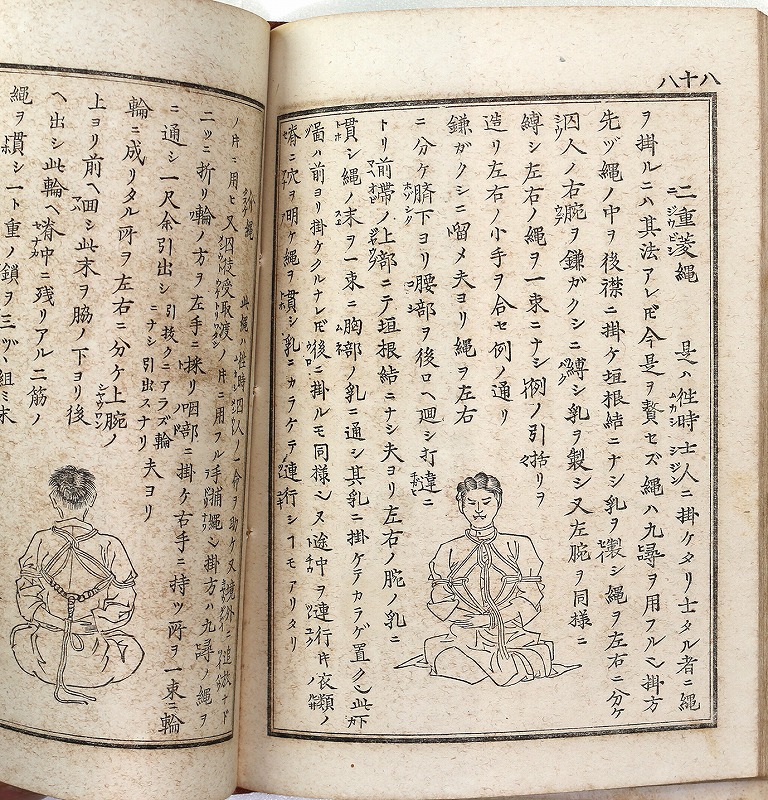 八十八
二重菱縄 是ハ往時士人ニ掛ケタリ士タル者ニ縄
ヲ掛ルニハ其法アレ𪜈今是ヲ贅セズ縄ハ九尋ヲ用フル也掛方
先ヅ縄ノ中ヲ後襟ニ掛ケ垣根結ニナシ乳ヲ製シ縄ヲ左右ニ分ケ
囚人ノ右腕ヲ鎌ガクシニ縛シ乳ヲ製シ又左腕ヲ同様ニ
縛シ左右ノ縄ヲ一束ニナシ例ノ引括リヲ
造リ左右ノ小手ヲ合セ例ノ通リ
鎌ガクシニ留メ夫ヨリ縄ヲ左右
ニ分ケ臍下ヨリ腰部ヲ後ロヘ廻シ打違ニ
トリ前帯ノ上部ニテ垣根結ニナシ夫ヨリ左右ノ腕ノ乳ニ
貫シ縄ノ末ヲ一束ニ胸部ノ乳ニ通シ其乳ニ掛ケテカラゲ置ク也此
図ハ前ヨリ掛ケタルナレ𪜈後ニ掛ルモ同様也又途中ヲ連行𪜈衣類ノ
脊ニ穴ヲ明ケ縄ヲ貫シ乳ニカラケテ連行シヿモアリタリ
縄 此縄ハ往時囚人ノ命ヲ助ケ又境外ニ追放ナド
ノ𪜈ニ用ヒ又囚徒受取渡ノ𪜈ニ用フル手捕縄也掛方ハ九尋ノ縄ヲ
二ツニ折リ輪ノ方ヲ左手ニ採リ咽部ニ掛ケ右手ニ持ツ所ヲ一束ニ輪
ニ通シ一尺余引出シ 引抜クニアラズ輪ニナシ引出スナリ 夫ヨリ
輪ニ成リタル所ヲ左右ニ分ケ上腕ノ
上ヨリ前ヘ回シ此末ヲ脇ノ下ヨリ後
ヘ出シ此輪ヘ脊中ニ残リアル二筋ノ
縄ヲ貫シ一ト重ノ鎖ヲ三ヅヽ組ミ末